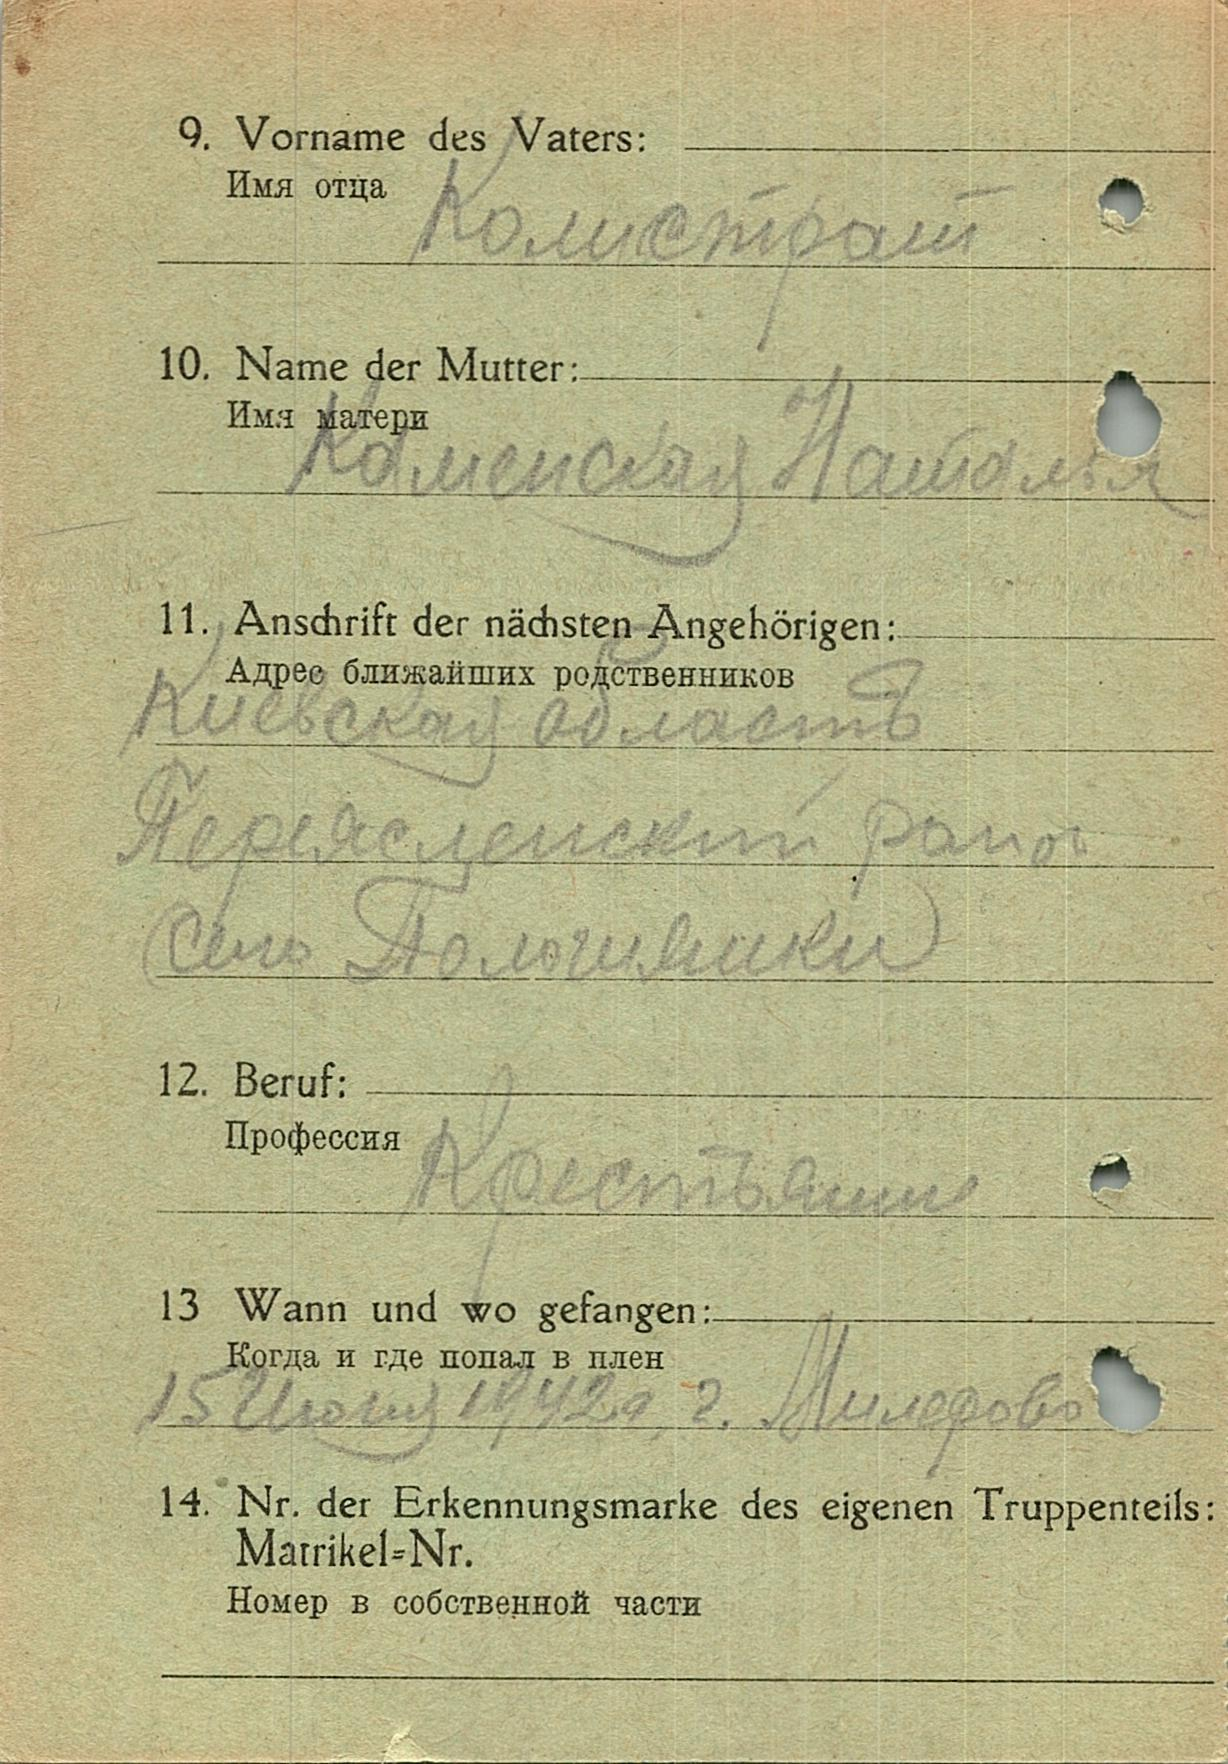 9. Vorname des Vaters:
Имя отца
Колистрат
10. Name der Mutter:
Имя матери
Каменская Наталья
11. Anschrift der nächsten Angehörigen:
Адрес ближайших родственников
Киевская область
село
12. Beruf:
Профессия
Крестьянин
13 Wann und wo gefangen:
Когда и где попал в плен
15 Июля 1942 г. Милерово
14. Nr. der Erkennungsmarke des eigenen Truppenteils:
Matrikel-Nr.
Номер в собственной части